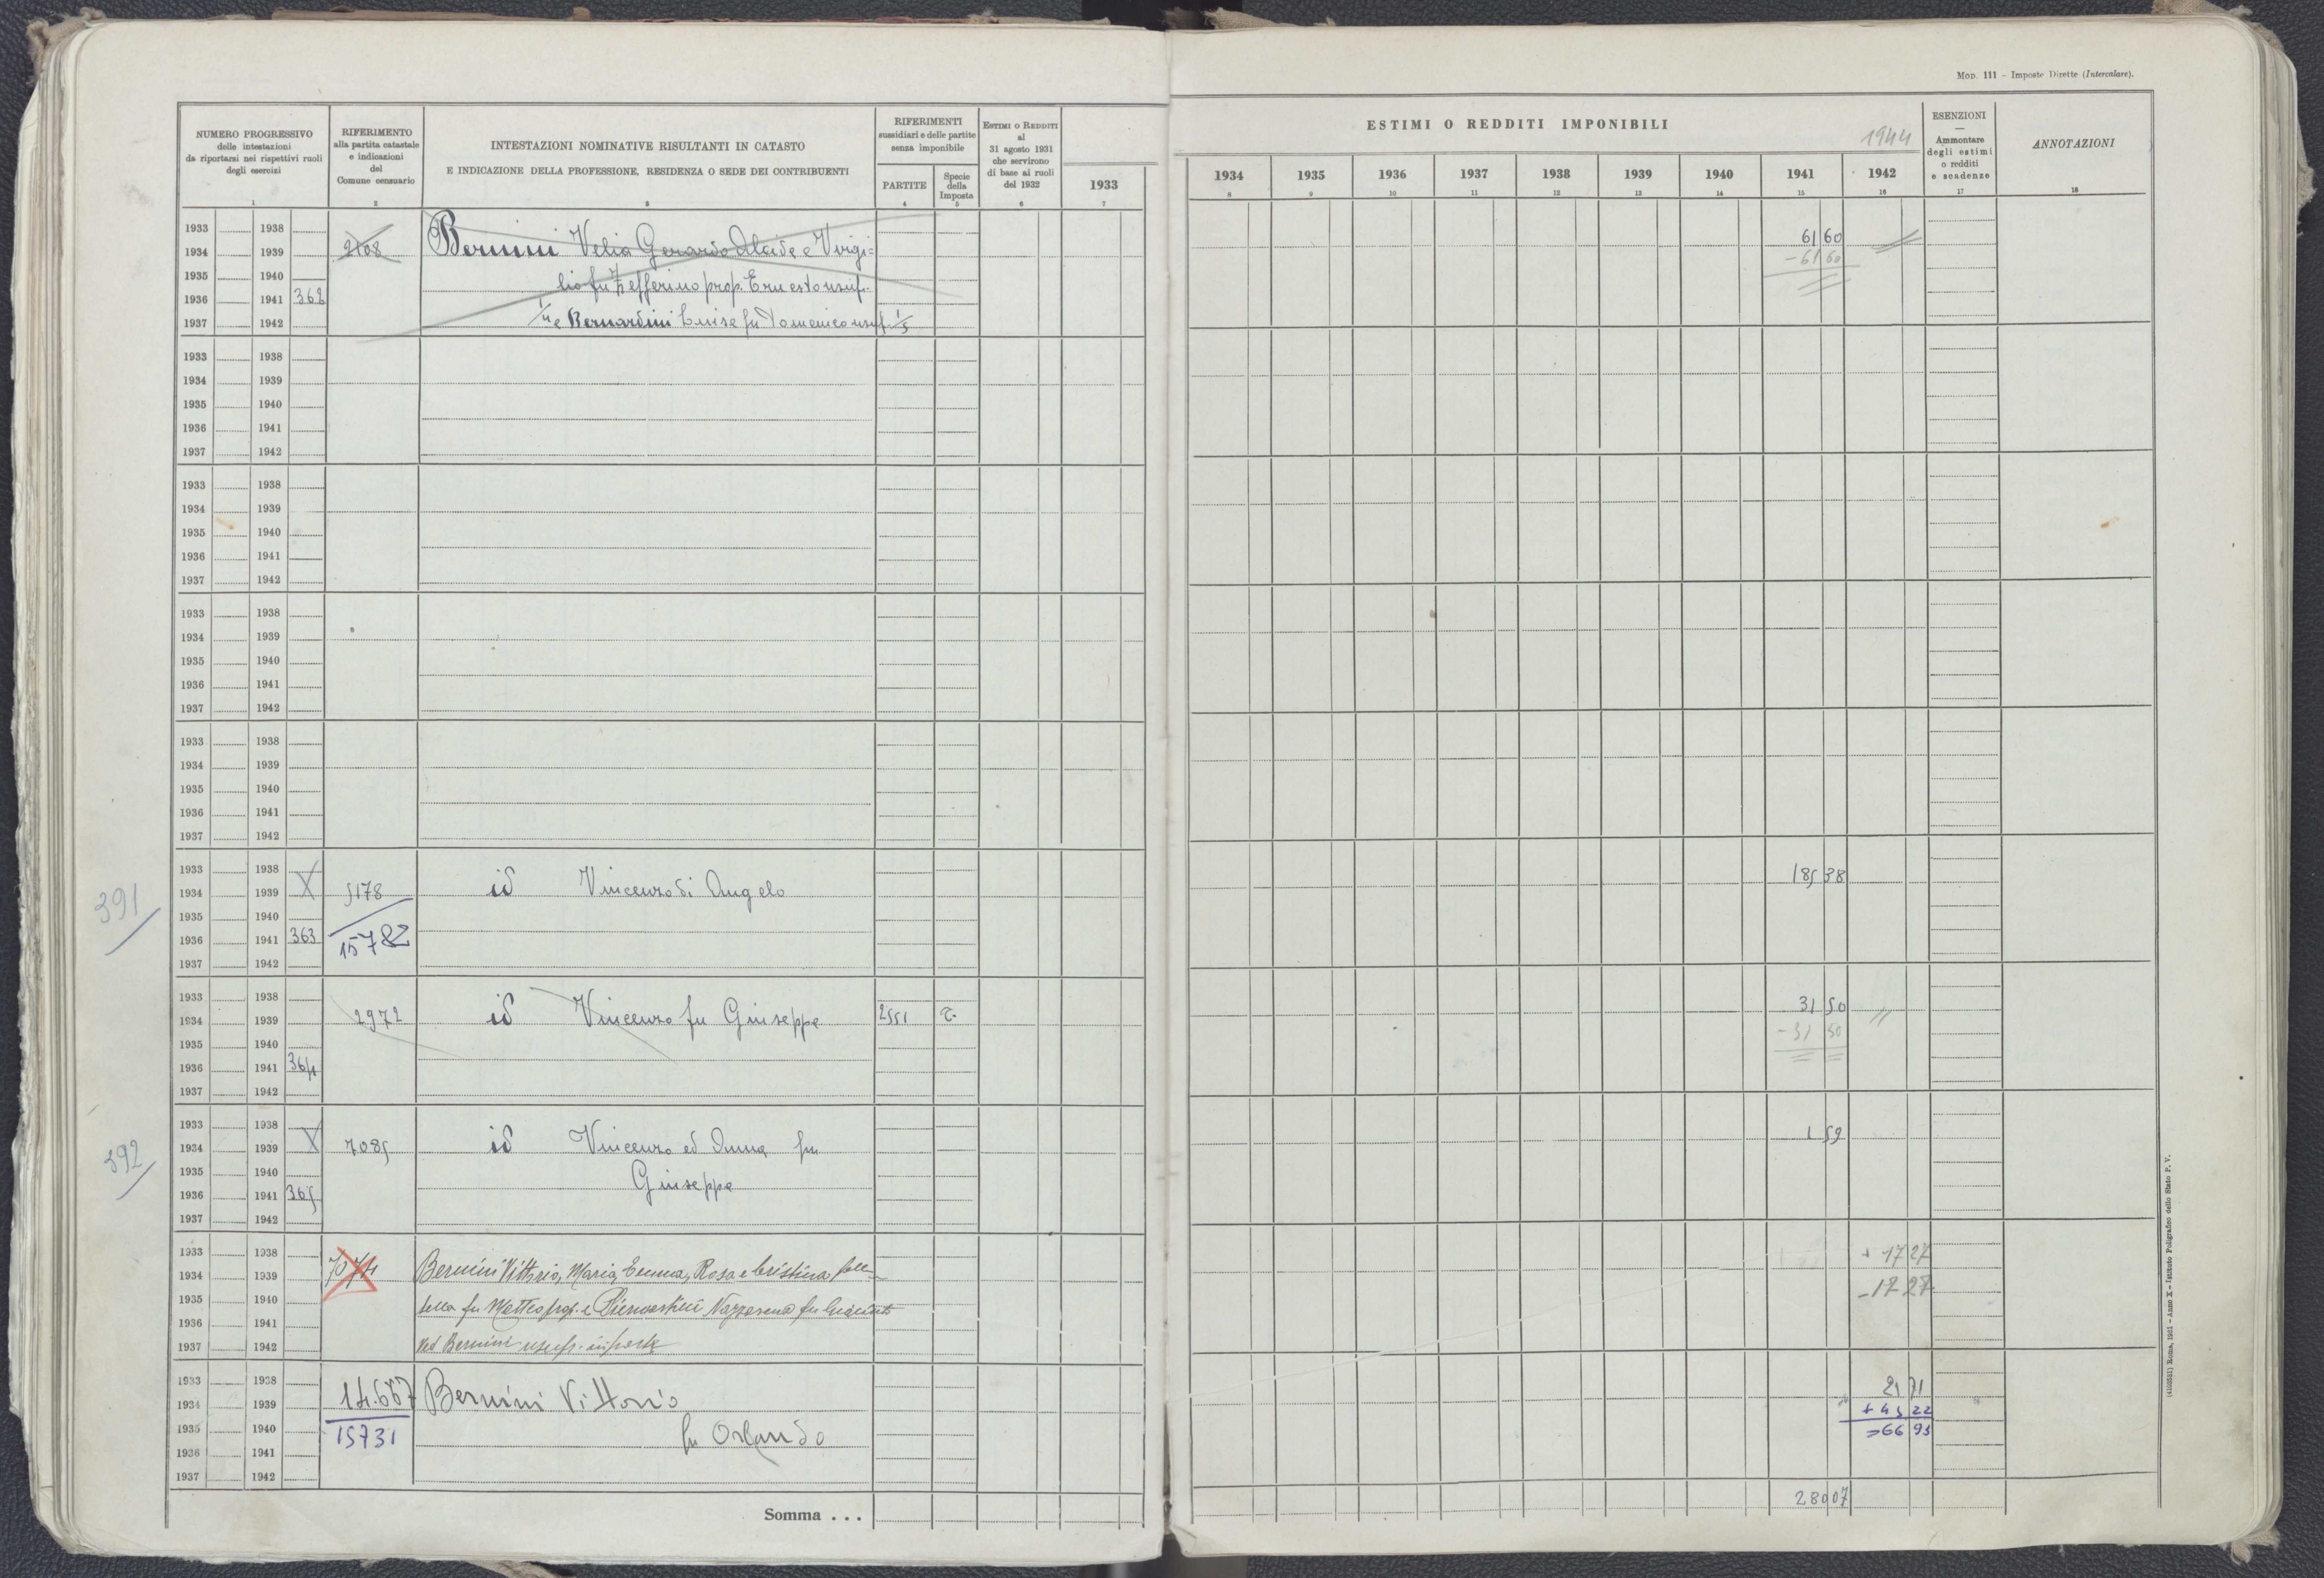 Mod. 111 - Imposte Dirette (Intercalare).
NUMERO PROGRESSIVO
delle intestazioni
da riportarsi nei rispettivi ruoli
degli esercizi
1
RIFERIMENTO
alla partita catastale
e indicazioni
del
Comune censuario
2
INTESTAZIONI NOMINATIVE RISULTANTI IN CATASTO
E INDICAZIONE DELLA PROFESSIONE, RESIDENZA O SEDE DEI CONTRIBUENTI
3
RIFERIMENTI
sussidiari e delle partite
senza imponibile
PARTITE
4
Specie
della
Imposta
5
ESTIMI O REDDITI
al
31 agosto 1931
che servirono
di base ai ruoli
del 1932
6
1933
7
ESTIMI O REDDITI IMPONIBILI
1944
1934 1935 1936 1937 1938 1939 1940 1941 1942
8 9 10 11 12 13 14 15 16
ESENZIONI
Ammontare
degli estimi
o redditi
e scadenze
17
ANNOTAZIONI
18
1933 1938
1934 1939 2108 Bernini Velia Gerardo Alcide e Virgi= 61 60
1935 1940 lio fu Zefferino prop. Ernesto usuf. -61 60
1936 1941 362
1937 1942 e Bernardini Luisa fu Domenico usuf. 1/3
1933 1938
1934 1939
1935 1940
1936 1941
1937 1942
1933 1938
1934 1939
1935 1940
1936 1941
1937 1942
1933 1938
1934 1939
1935 1940
1936 1941
1937 1942
1933 1938
1934 1939
1935 1940
1936 1941
1937 1942
1933 1938 X
391 1934 1939 5178 id Vincenzo di Angelo 185 38
1935 1940
1936 1941 363 15782
1937 1942
1933 1938
1934 1939 2972 id Vincenzo fu Giuseppe 2551 31 50
1935 1940 -31 50
1936 1941 364
1937 1942
1933 1938 X
392 1934 1939 7085 id Vincenzo ed Anna fu 1 59
1935 1940 Giuseppe
1936 1941 365
1937 1942
1933 1938 + 17 27
1934 1939 7074 Bernini Vittorio, Maria, Emma, Rosa e Cristina
1935 1940 fu Matteo prop. e Nazzarena fu - 17 27
1936 1941
1937 1942 ved Bernini usufr. in parte
1933 1938
1934 1939 14.667 Bernini Vittorio 21 71
1935 1940 15731 fu Orlando + 45 22
1936 1941 =66 93
1937 1942
Somma . . . 280 07
(4103531) Roma, 1931 - Anno X - Istituto Poligrafico dello Stato P. V.